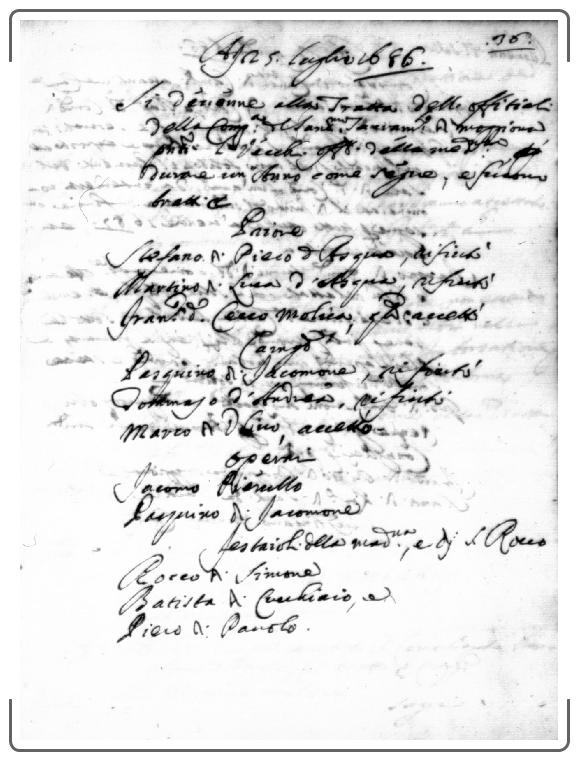 36.
A dì 25. luglio 1686.
Si devenne alla Tratta delli offitiali
della Comp.a del Sant.mo Sacram.to
li Vecchi off.li della med.ma
durare un Anno come segue, e furono
tratti
Priore
Stefano di Piero d' Asqua, rifiutò
Martino di Luca d' Asqua, rifiutò
Fran.co di Cecco accettò
Camarl.o
Pasquino di Jacomone, rifiutò
Tommaso d' Andrea, rifiutò
Marco di accettò
operai
Jacomo
Pasquino di Jacomone
Festaioli della mad.na, e di S. Rocco
Rocco di Simone
Batista di Cucchiaio, e
Piero di Pavolo.